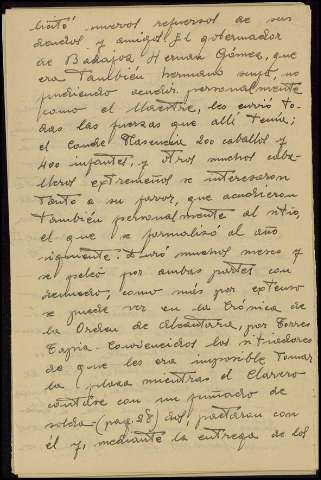 licitó nuevos refuerzos de sus
deudos y amigos. El gobernador
de Badajoz Hernan Gómez, que
era también hermano suyo, no
pudiendo acudir personalmente
como el Maestre, les envió to-
das las fuerzas que allí tenía;
el Conde Plasencia 200 caballos y
400 infantes, y otros muchos caba-
lleros extremeños se interesaron
tanto a su favor, que acudieron
también personalmente al sitio,
el que se formalizó al año
siguiente. Duró muchos meses y
se peleó por ambas partes con
denuedo, como más por extenso
se puede ver en la Crónica de
la Orden de Alcántara, por Torres
Tapia. Convencidos los sitiadores
de que les era imposible tomar
la plaza mientras el Clavero
contase con un puñado de
solda- (pag. 28) dos, pactaron con
él y, mediante la entrega de los